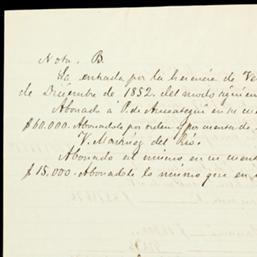 Nota. B.
La entrada por la herencia de Ve
de Diciembre de 1852. del modo siguien
Abonado á P. de Ansoategui en su cu
$60.000. Abonandole por orden y por cuenta de
V. Marques del Rio.
Abonado al mismo en su cuent
$15,000. Abonandole lo mismo que en